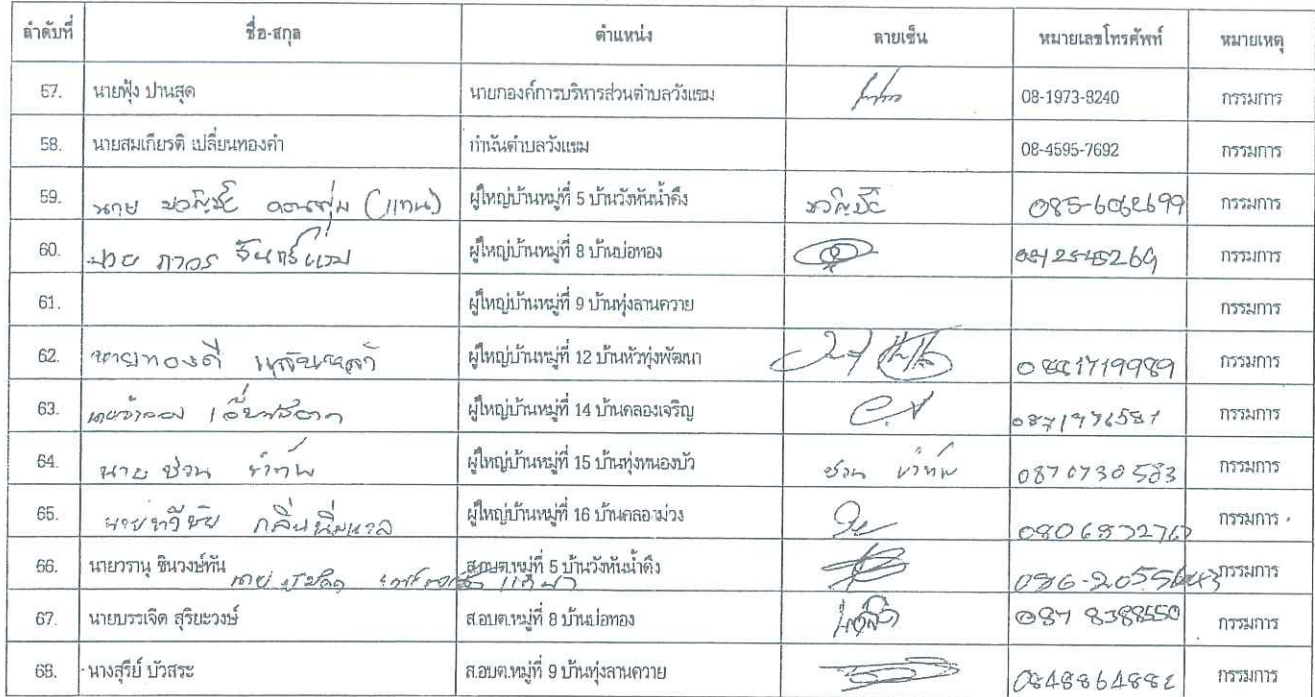 ลำดับที่ ชื่อ-สกุล ตำแหน่ง ลายเซ็น หมายเลขโทรศัพท์ หมายเหตุ
57. นายฟุ้ง ปานสุด นายกองค์การบริหารส่วนตำบลวังแขม 08-1973-8240 กรรมการ
58. นายสมเกียรติ เปลี่ยนทองคำ กำนันตำบลวังแขม 08-4595-7692 กรรมการ
59. นาย (แทน) ผู้ใหญ่บ้านหมู่ที่ 5 บ้านวังหันน้ำดึง กรรมการ
60. นาย ภาอร จันทร์แรม ผู้ใหญ่บ้านหมู่ที่ 8 บ้านบ่อทอง กรรมการ
61. ผู้ใหญ่บ้านหมู่ที่ 9 บ้านทุ่งลานควาย กรรมการ
62. นายทองดี ผู้ใหญ่บ้านหมู่ที่ 12 บ้านหัวทุ่งพัฒนา กรรมการ
63. นายจำลอง ผู้ใหญ่บ้านหมู่ที่ 14 บ้านคลองเจริญ กรรมการ
64. นาย ช่วน ขำทัพ ผู้ใหญ่บ้านหมู่ที่ 15 บ้านทุ่งหนองบัว ช่วน ขำทัพ 0870730583 กรรมการ
65. นายทวีชัย กลิ่นนิ่มนวล ผู้ใหญ่บ้านหมู่ที่ 16 บ้านคลองม่วง กรรมการ
66. นายวรานุ ชินวงษ์ทัน ส.อบต.หมู่ที่ 5 บ้านวังหันน้ำดึง กรรมการ
67. นายบรรเจิด สุริยะวงษ์ ส.อบต.หมู่ที่ 8 บ้านบ่อทอง 087 8388550 กรรมการ
68. นางสุรีย์ บัวสระ ส.อบต.หมู่ที่ 9 บ้านทุ่งลานควาย 0848864882 กรรมการ